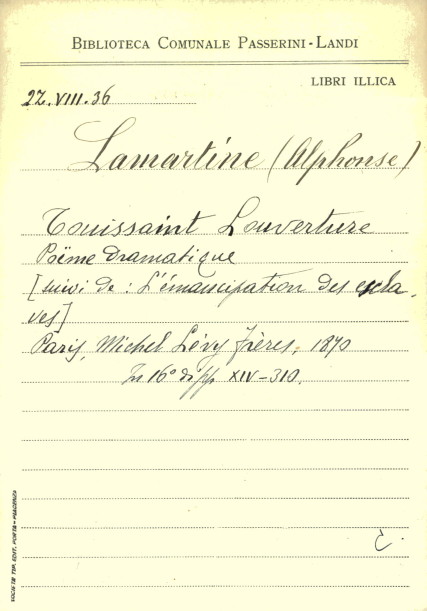 BIBLIOTECA COMUNALE PASSERINI-LANDI
LIBRI ILLICA
22.VIII.36
Lamartine (Alphonse)
Touissaint Louverture
Poëme dramatique
[suivi de: L'émancipation des escla-
ves]
Paris, Michel Lévy frères, 1870
In 16° di pp XIV-310.
C.